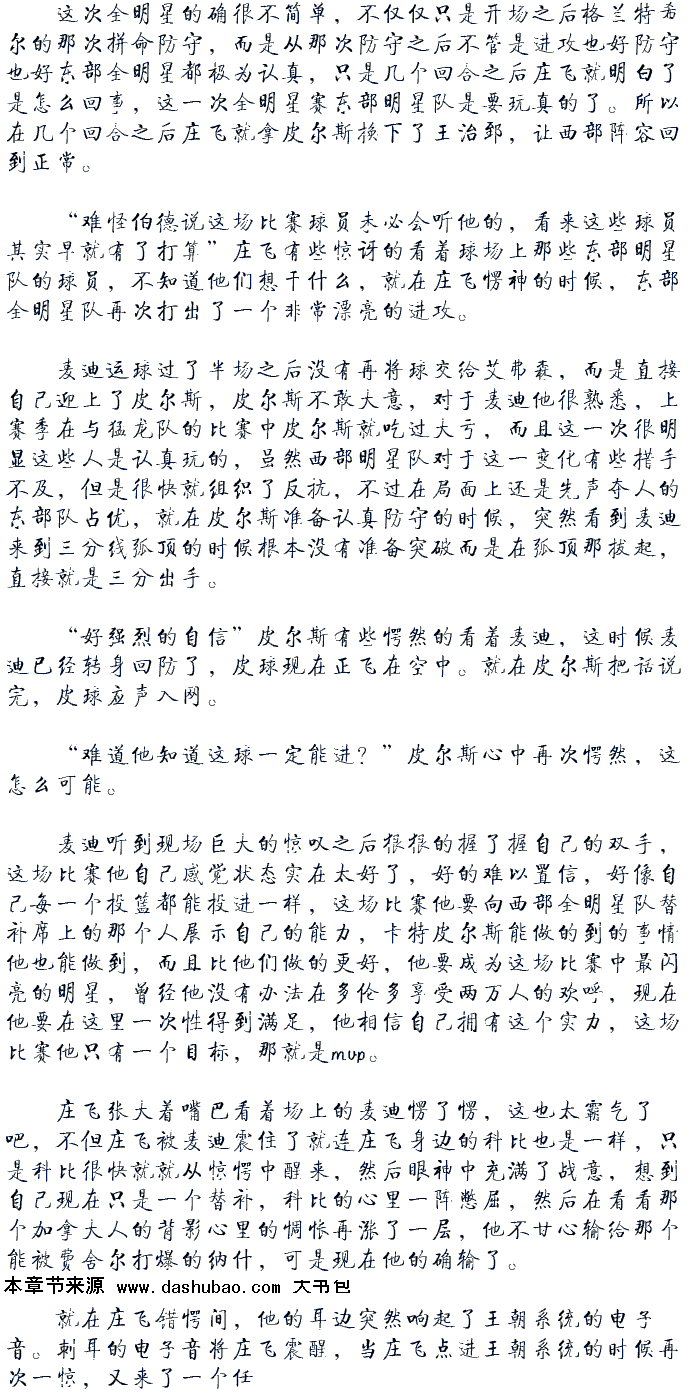 这次全明星的确很不简单，不仅仅只是开场之后格兰特希
尔的那次拼命防守，而是从那次防守之后不管是进攻也好防守
也好东部全明星都极为认真，只是几个回合之后庄飞就明白了
是怎么回事，这一次全明星赛东部明星队是要玩真的了。所以
在几个回合之后庄飞就拿皮尔斯换下了王治郅，让西部阵容回
到正常。
“难怪伯德说这场比赛球员未必会听他的，看来这些球员
其实早就有了打算”庄飞有些惊讶的看着球场上那些东部明星
队的球员，不知道他们想干什么，就在庄飞愣神的时候，东部
全明星队再次打出了一个非常漂亮的进攻。
麦迪运球过了半场之后没有再将球交给艾弗森，而是直接
自己迎上了皮尔斯，皮尔斯不敢大意，对于麦迪他很熟悉，上
赛季在与猛龙队的比赛中皮尔斯就吃过大亏，而且这一次很明
显这些人是认真玩的，虽然西部明星队对于这一变化有些措手
不及，但是很快就组织了反抗，不过在局面上还是先声夺人的
东部队占优，就在皮尔斯准备认真防守的时候，突然看到麦迪
来到三分线弧顶的时候根本没有准备突破而是在弧顶那拔起，
直接就是三分出手。
“好强烈的自信”皮尔斯有些愕然的看着麦迪，这时候麦
迪已经转身回防了，皮球现在正飞在空中。就在皮尔斯把话说
完，皮球应声入网。
“难道他知道这球一定能进？”皮尔斯心中再次愕然，这
怎么可能。
麦迪听到现场巨大的惊叹之后狠狠的握了握自己的双手，
这场比赛他自己感觉状态实在太好了，好的难以置信，好像自
己每一个投篮都能投进一样，这场比赛他要向西部全明星队替
补席上的那个人展示自己的能力，卡特皮尔斯能做的到的事情
他也能做到，而且比他们做的更好，他要成为这场比赛中最闪
亮的明星，曾经他没有办法在多伦多享受两万人的欢呼，现在
他要在这里一次性得到满足，他相信自己拥有这个实力，这场
比赛他只有一个目标，那就是mvp。
庄飞张大着嘴巴看着场上的麦迪愣了愣，这也太霸气了
吧，不但庄飞被麦迪震住了就连庄飞身边的科比也是一样，只
是科比很快就就从惊愕中醒来，然后眼神中充满了战意，想到
自己现在只是一个替补，科比的心里一阵憋屈，然后在看看那
个加拿大人的背影心里的惆怅再涨了一层，他不甘心输给那个
能被费舍尔打爆的纳什，可是现在他的确输了。
本章节来源 www.dashubao.com 大书包
就在庄飞错愕间，他的耳边突然响起了王朝系统的电子
音。刺耳的电子音将庄飞震醒，当庄飞点进王朝系统的时候再
次一惊，又来了一个任